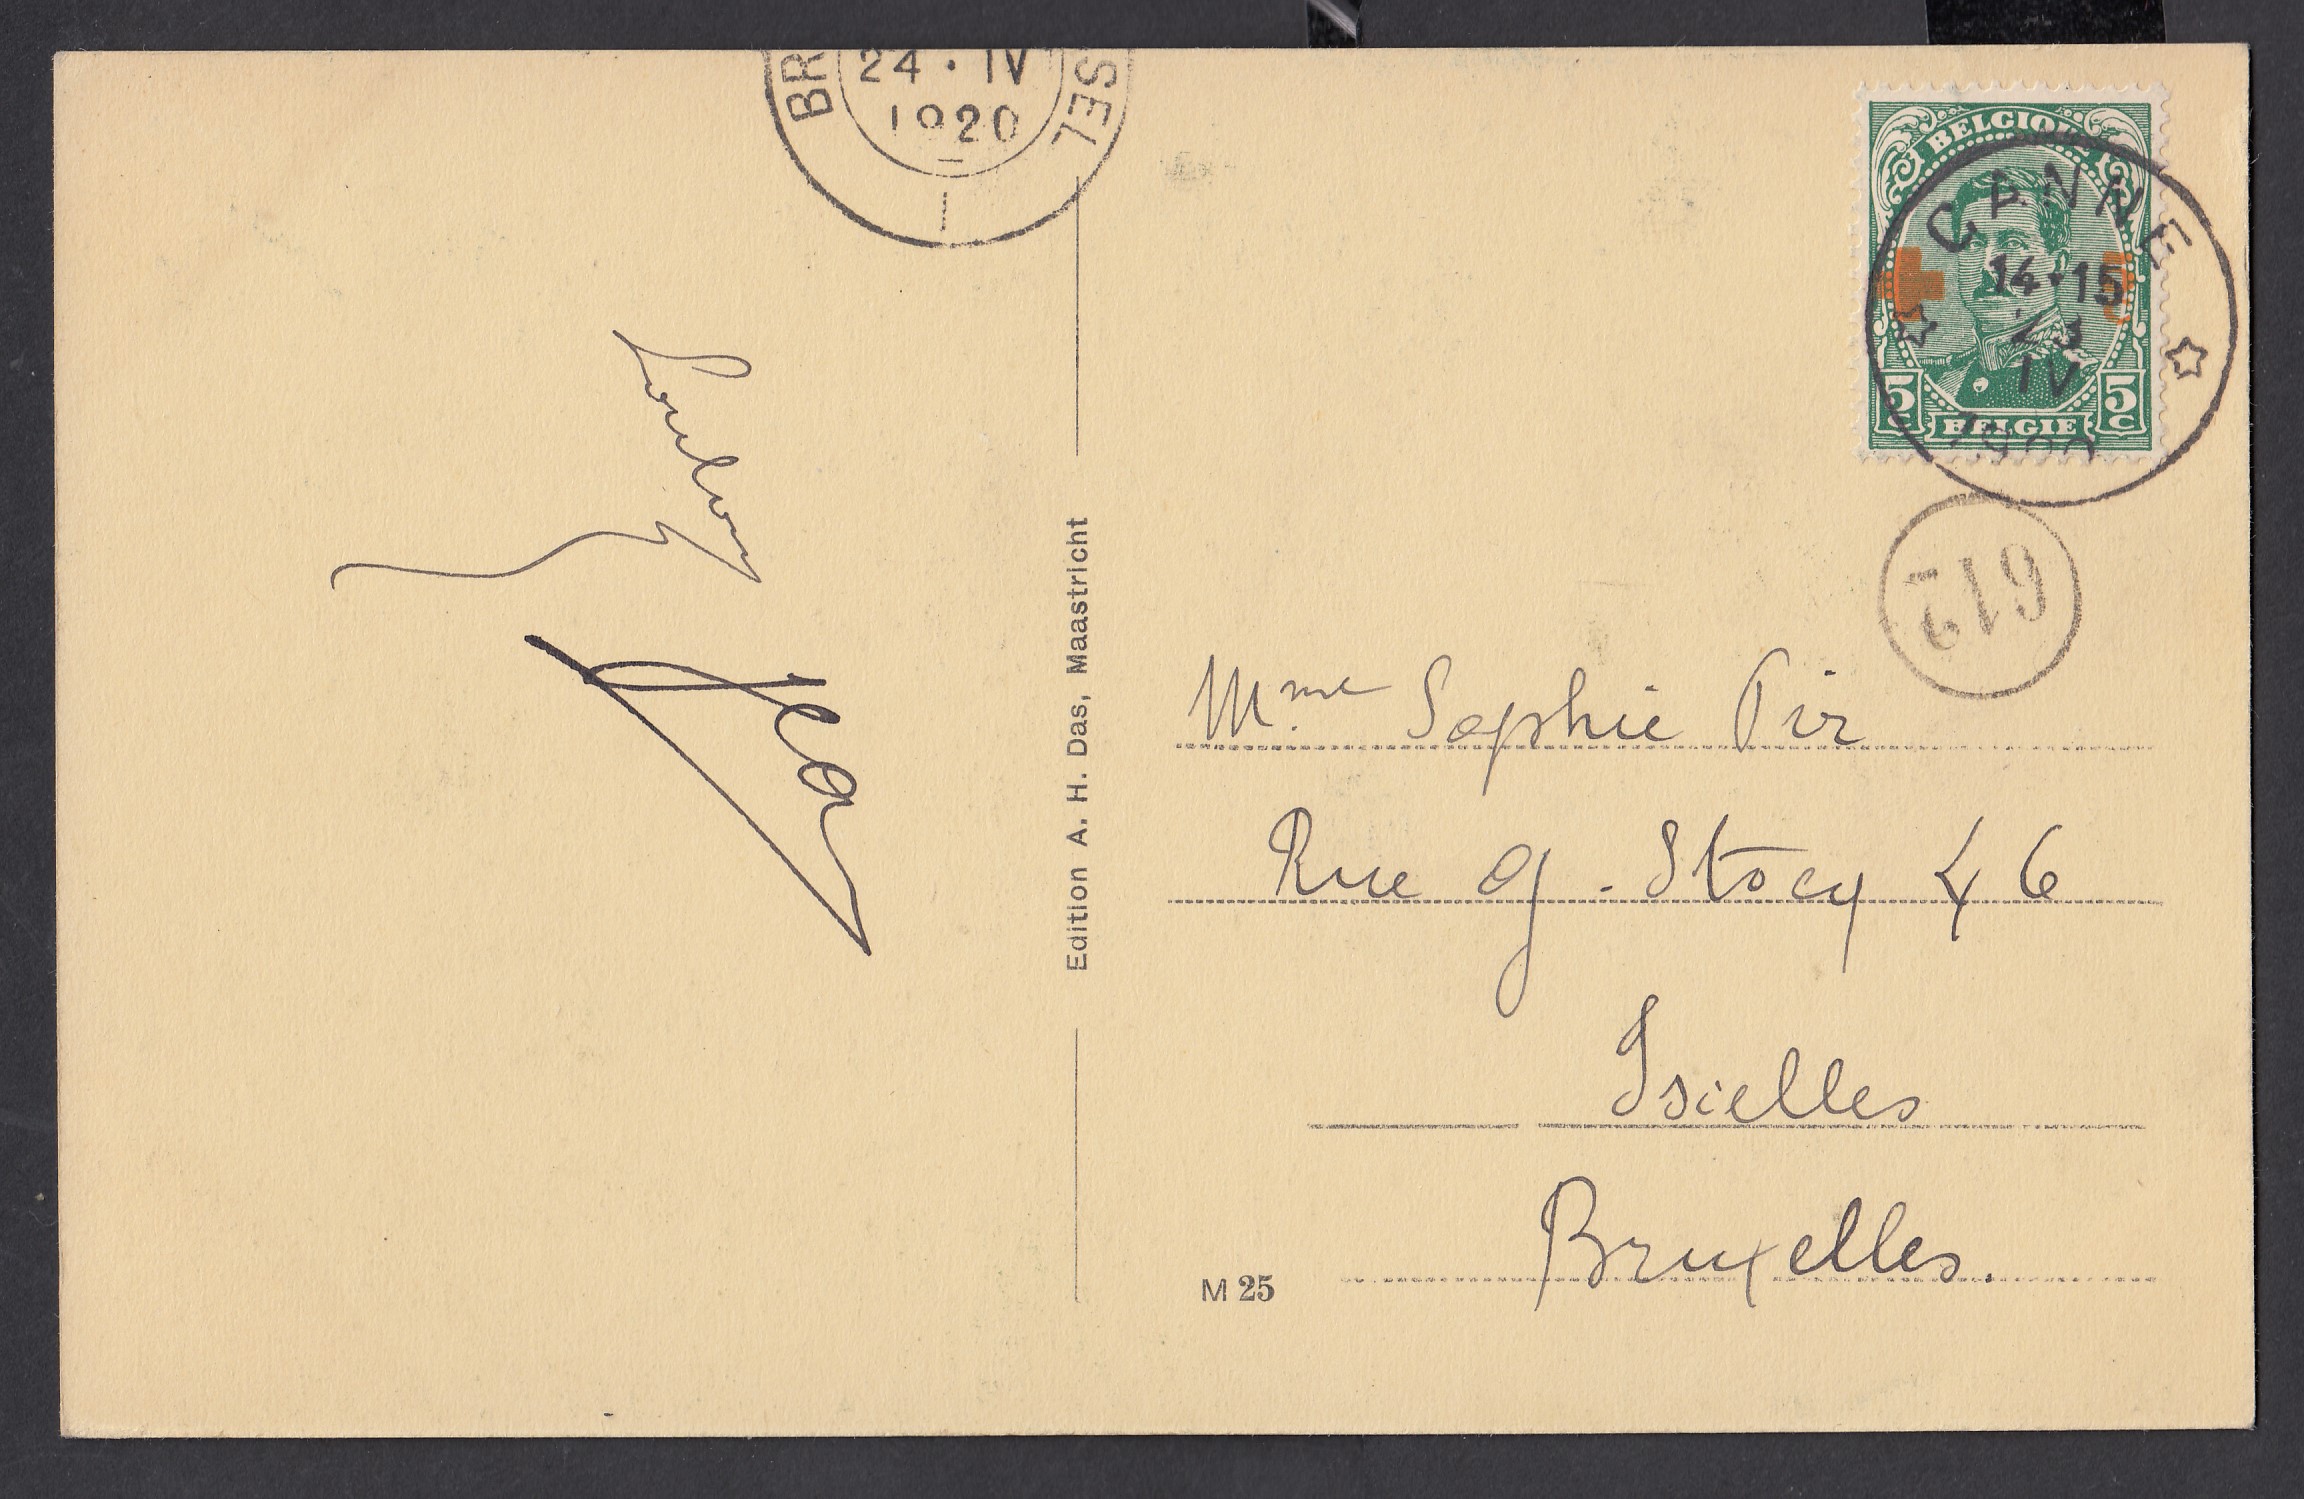 BR SEL
24 · IV
1920
1
BELGIQUE
CANNE
14-15
23
IV
1920
5
5c
5c
BELGIE
619
Edition A. H. Das, Maastricht
Mme Sophie Pir
Rue G. Stocq 46
Ixielles
Bruxelles.
M 25